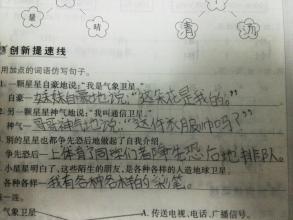 星
晴
青
九
创新提速线
用加点的词语仿写句子。
1. 一颗星星自豪地说:“我是气象卫星。”
自豪—妹妹自豪地说:“这朵花是我的。”
2. 另一颗星星神气地说:“我叫通信卫星。”
神气—哥哥神气地说:“这件衣服帅吗?”
3. 别的星星也都争先恐后地做起了自我介绍。
争先恐后—上体育了同学们都争先恐后地排队。
4. 小星星明白了,这些陌生的朋友,是各种各样的人造地球卫星。
各种各样—我有各种各样的彩笔。
气象卫星
A. 传送电视、电话、广播信号。